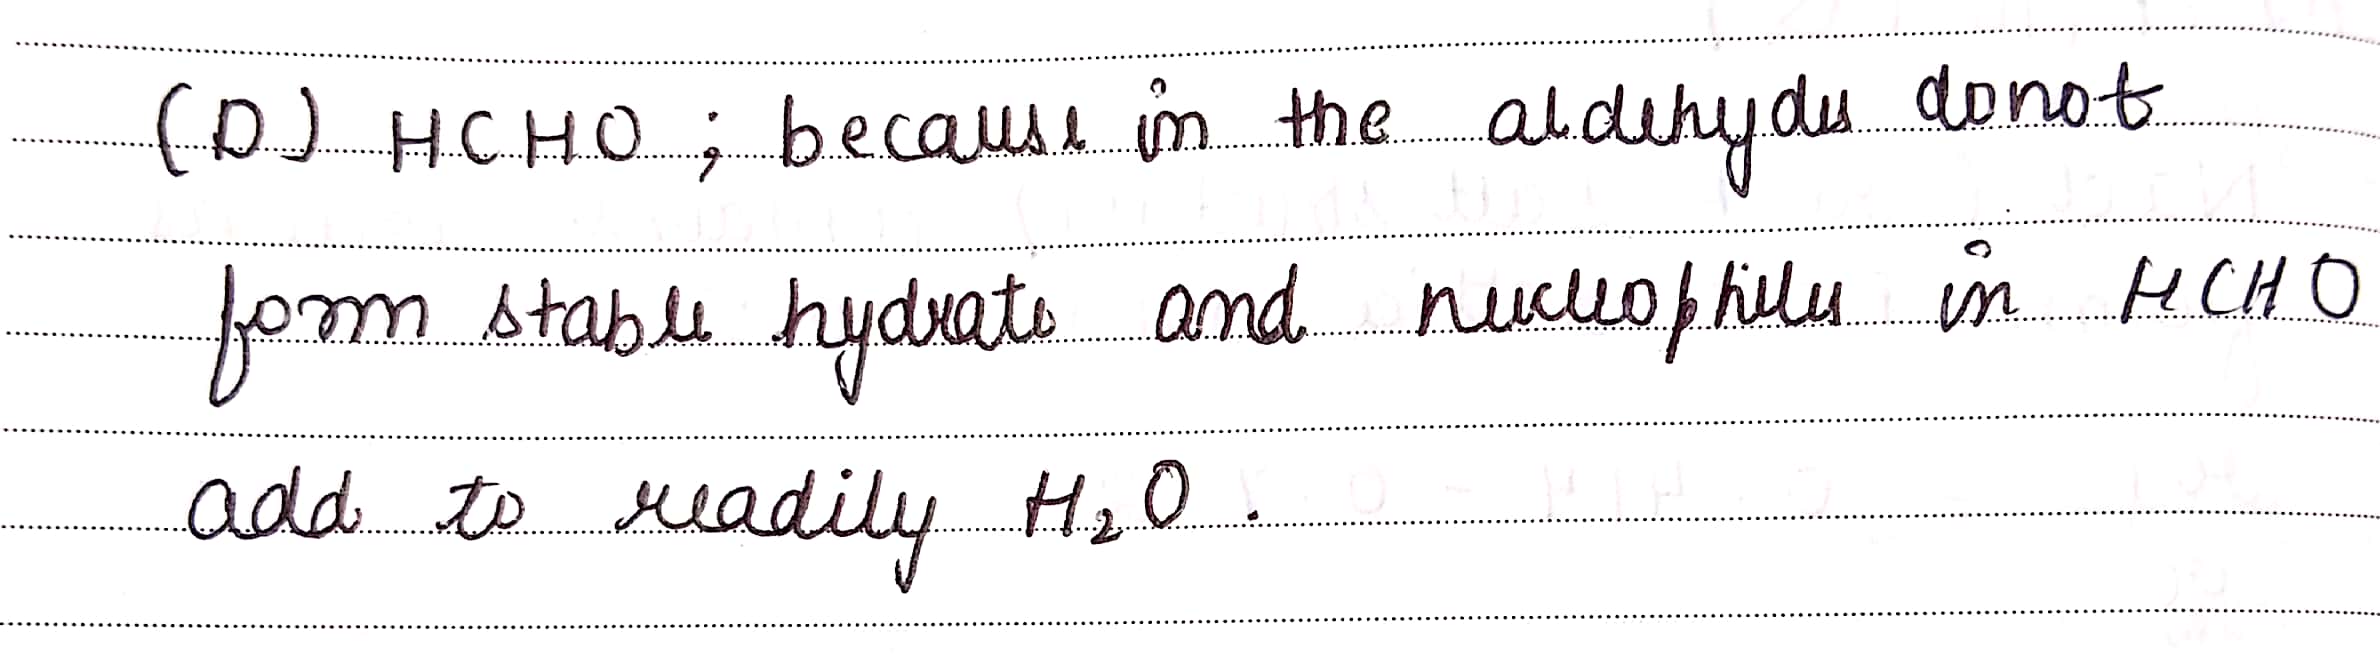 (D) HCHO ; because in the aldehydes donot
form stable hydrate and nucleophiles in HCHO
add to readily H₂O.